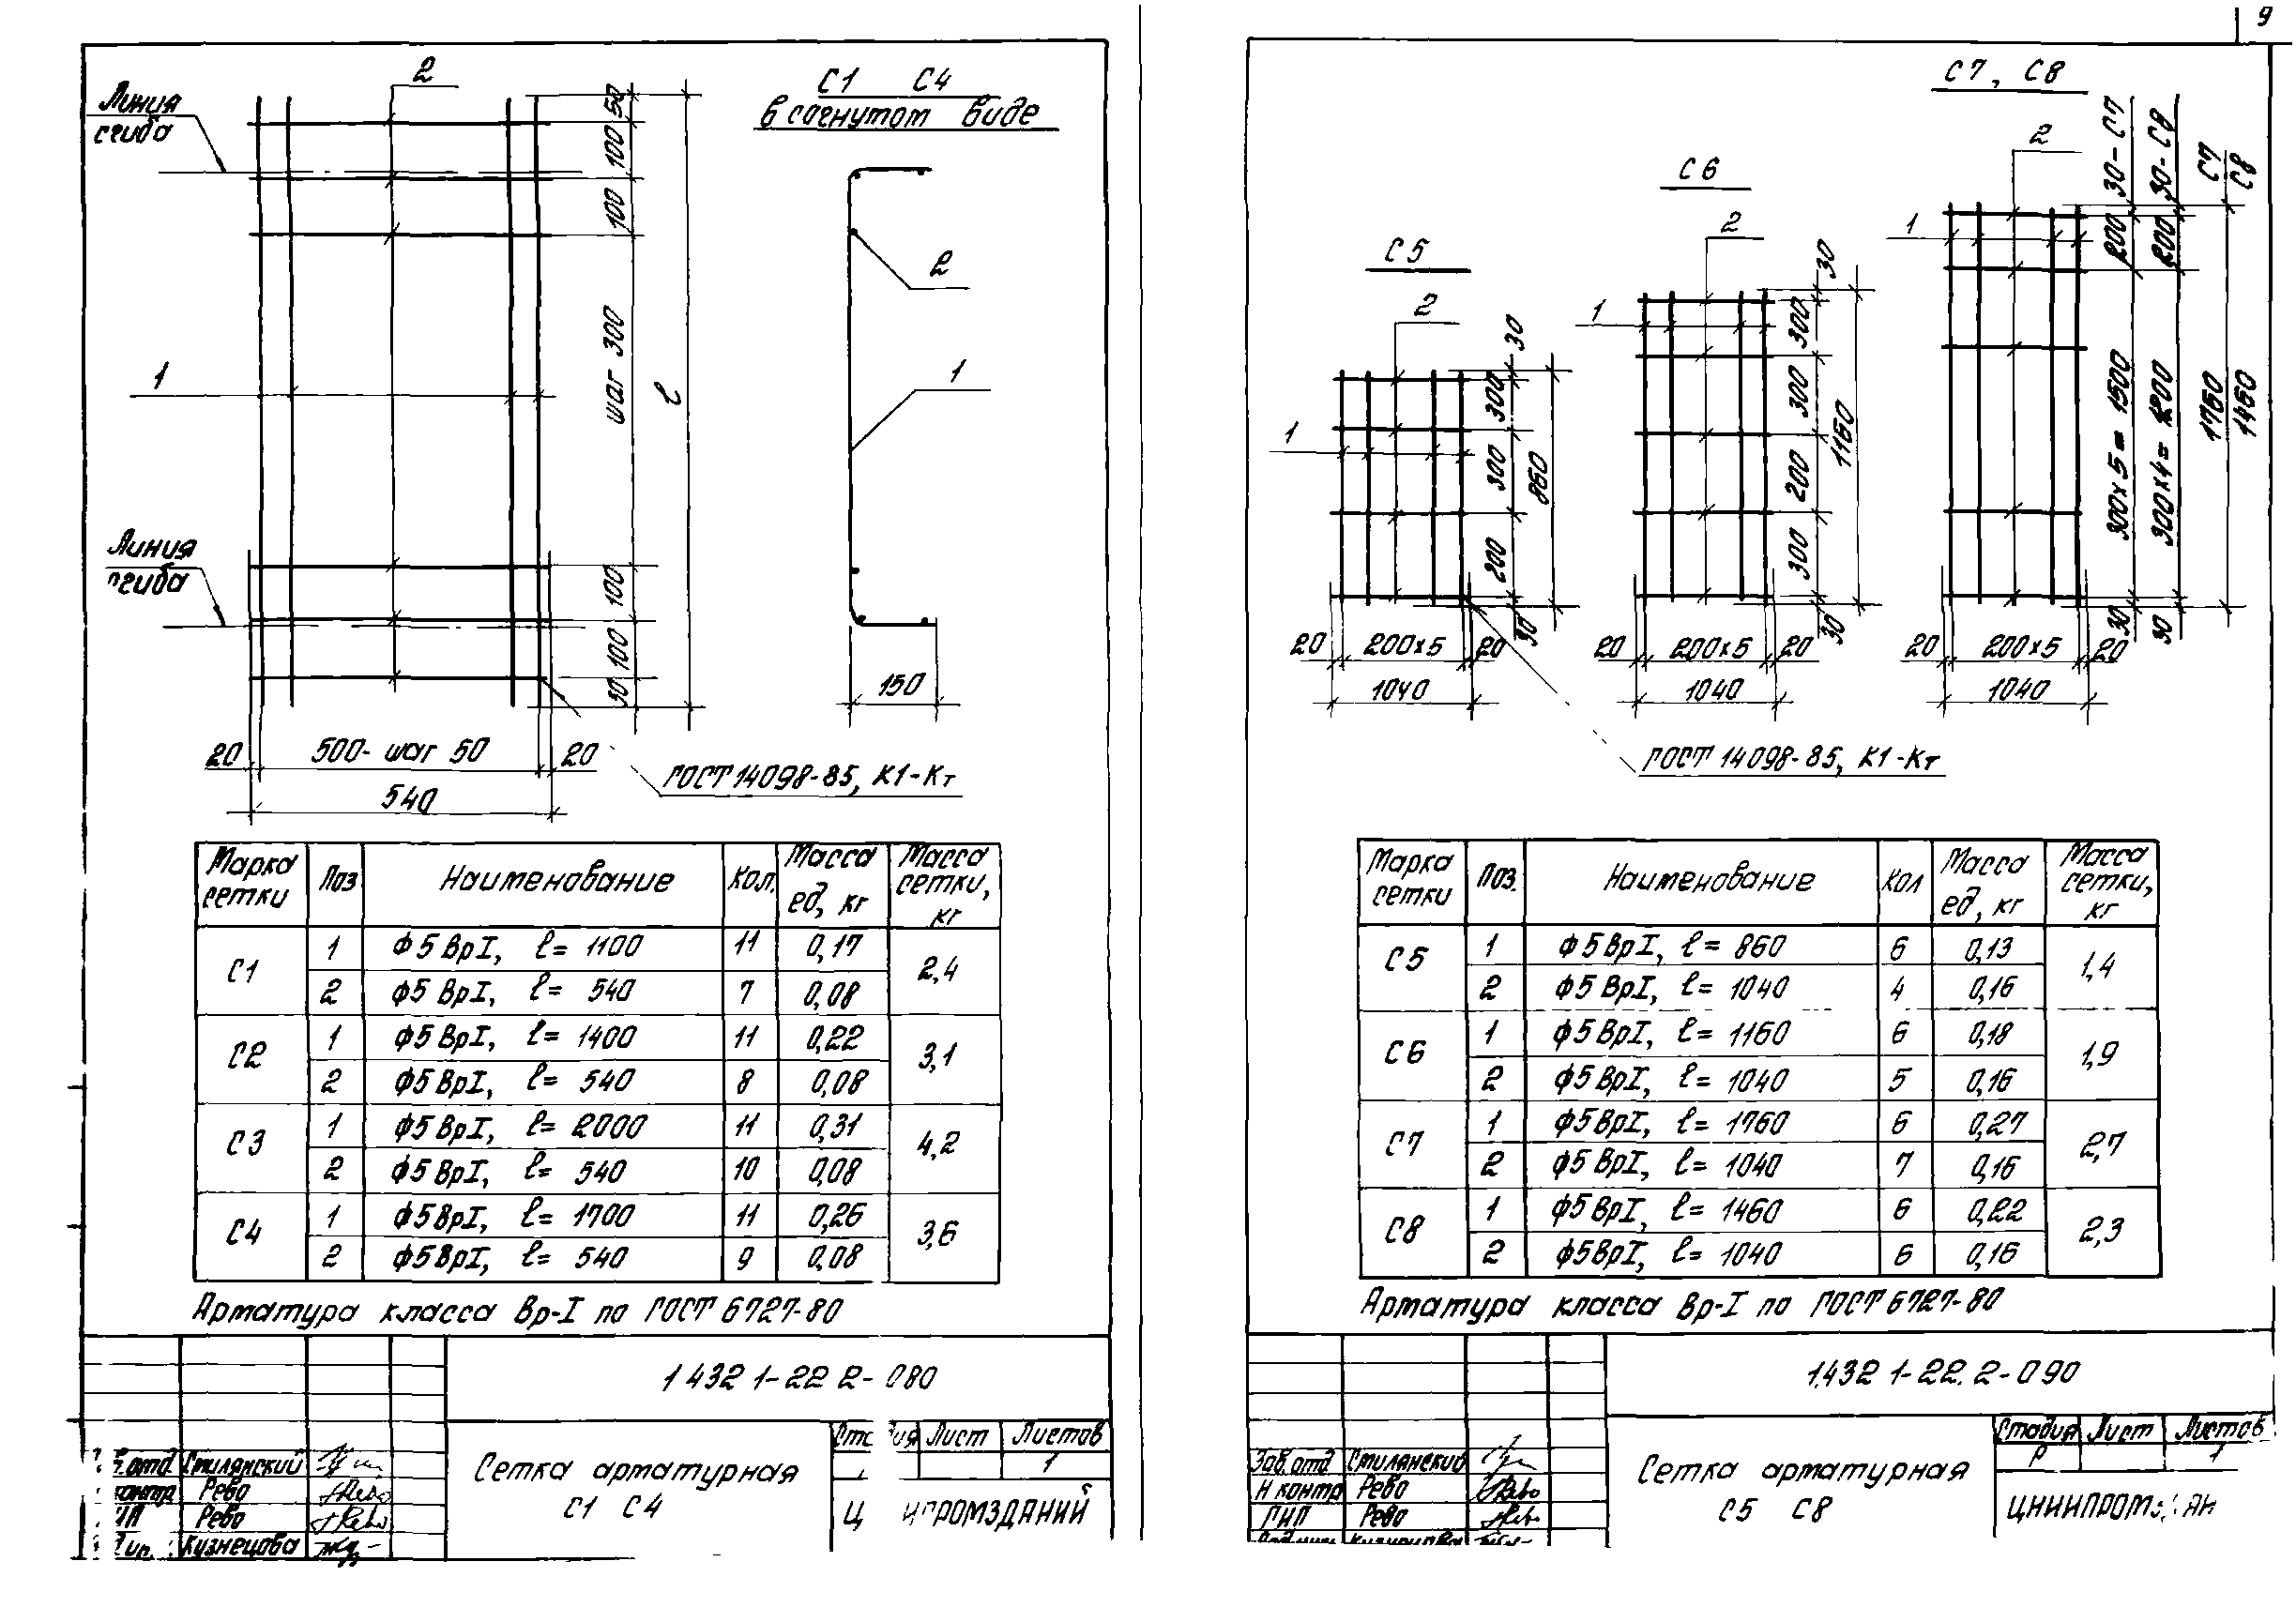 9
Линия
сгиба
2
50
100
100
шаг 300
100
100
50
ℓ
1
Линия
сгиба
20
500- шаг 50
20
540
ГОСТ 14098-85, К1-Кт
С1 С4
в согнутом виде
2
1
150
Марка сетки | Поз | Наименование | Кол. | Масса ед, кг | Масса сетки, кг
С1 | 1 | ф5ВрI, ℓ= 1100 | 11 | 0,17 | 2,4
2 | ф5ВрI, ℓ= 540 | 7 | 0,08
С2 | 1 | ф5ВрI, ℓ= 1400 | 11 | 0,22 | 3,1
2 | ф5ВрI, ℓ= 540 | 8 | 0,08
С3 | 1 | ф5ВрI, ℓ= 2000 | 11 | 0,31 | 4,2
2 | ф5ВрI, ℓ= 540 | 10 | 0,08
С4 | 1 | ф5ВрI, ℓ= 1700 | 11 | 0,26 | 3,6
2 | ф5ВрI, ℓ= 540 | 9 | 0,08
Арматура класса Вр-I по ГОСТ 6727-80
1 432 1-22 2- 080
Сетка арматурная
С1 С4
Лист Листов
1
отд. Стилянский
контр Рево
Рево
Кузнецова
С5
2
1
30
300
300
200
30
860
20
200х5
20
1040
С6
2
1
30
300
300
200
300
30
1160
20
200х5
20
1040
С7, С8
2
1
30-С7
30-С8
С7
С8
200
200
300х5= 1500
300х4= 1200
1760
1460
30
30
20
200х5
20
1040
ГОСТ 14098-85, К1-Кт
Марка сетки | Поз. | Наименование | Кол | Масса ед, кг | Масса сетки, кг
С5 | 1 | ф5ВрI, ℓ= 860 | 6 | 0,13 | 1,4
2 | ф5ВрI, ℓ= 1040 | 4 | 0,16
С6 | 1 | ф5ВрI, ℓ= 1160 | 6 | 0,18 | 1,9
2 | ф5ВрI, ℓ= 1040 | 5 | 0,16
С7 | 1 | ф5ВрI, ℓ= 1760 | 6 | 0,27 | 2,7
2 | ф5ВрI, ℓ= 1040 | 7 | 0,16
С8 | 1 | ф5ВрI, ℓ= 1460 | 6 | 0,22 | 2,3
2 | ф5ВрI, ℓ= 1040 | 6 | 0,16
Арматура класса Вр-I по ГОСТ 6727-80
1.432 1-22. 2-090
Сетка арматурная
С5 С8
Стадия Лист Листов
Р 1
Зав. отд. Стилянский
Н контр Рево
ГИП Рево